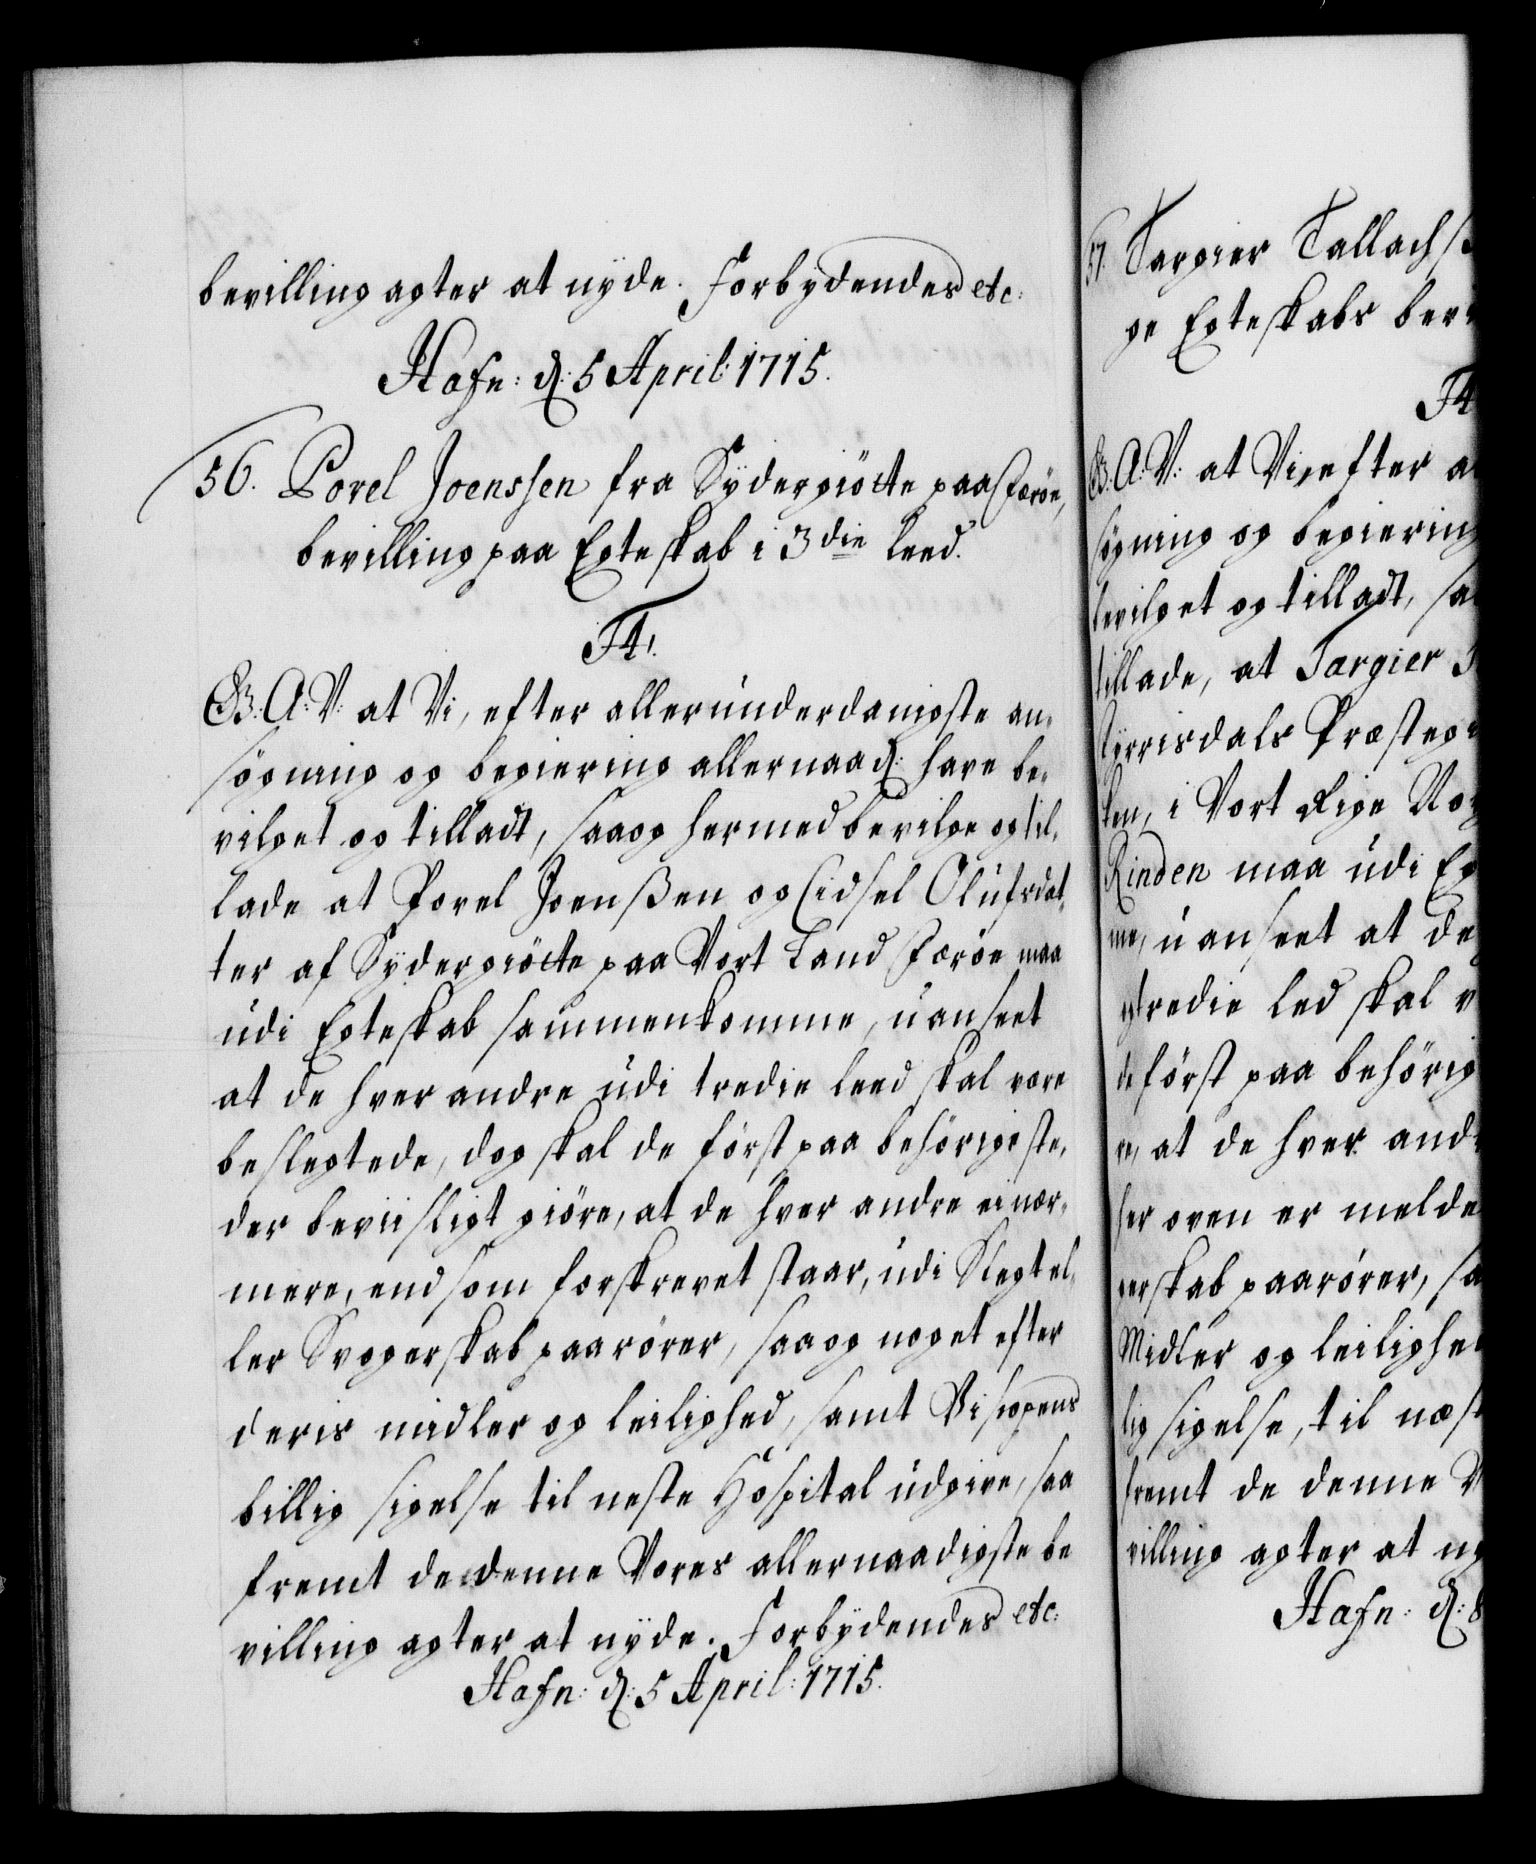 bevilling agter at nyde. Forbydendes etc:
Hafn: d: 5 April: 1715.
56. Povel Joenssen fra Sydergiöcte paa Færöe,
bevilling paa Egteskab i 3die leed.
F4.
G.A:V: at Vi, efter allerunderdanigste an-
søgning og begiering allernaad: have be-
vilget og tilladt, saa og hermed bevilge og til-
lade at Povel Joenßen og Cidsel Olufsdat-
ter af Sydergiöcte paa Vort Land Færöe maa
udi Egteskab sammenkomme, uanseet
at de hver andre udi tredie leed skal være
beslegtede, dog skal de först paa behörige ste-
der beviisligt giöre, at de hver andre ei nær-
mere, end som forskrevet staar, udi Slegt el-
ler Svogerskab paarörer, saa og noget efter
deris midler og leilighed, samt Biscopens
billig sigelse til neste Hospital udgive, saa
fremt de denne Vores allernaadigste be
villing agter at nyde. Forbydendes etc:
Hafn: d: 5 April: 1715.
57. Targier Tallachs
ge Egteskabs bev
F4
G.A:V: at Vi, efter a
søgning og begiering
bevilget og tilladt, sa
tillade, at Targier
Præsteg
i Vort Rige No
Rinden maa udi Eg
me, uanseet at de
tredie led skal v
de först paa behörig
re, at de hver and
her oven er melde
gerskab paarörer, sa
Midler og leilighe
lig sigelse, til næst
fremt de denne V
villing agter at ny
Hafn: d: 8